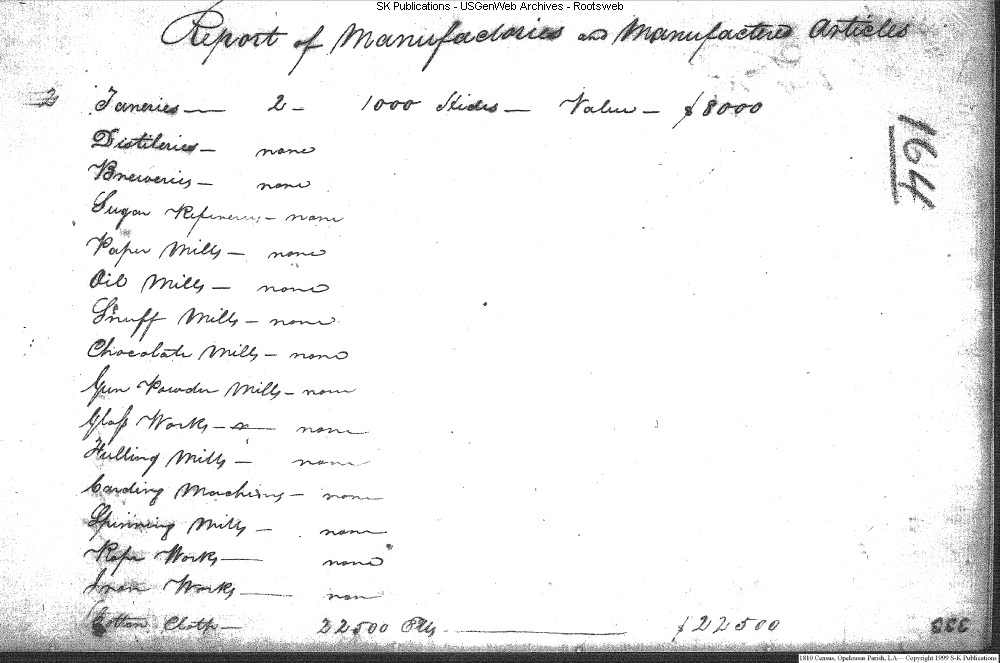 SK Publications - USGenWeb Archives - Rootsweb
Report of Manufactories and Manufactered Articles
2 Taneries — 2 - 1000 Hides — Value — $8000
164
Distileries — none
Breweries — none
Sugar Refineries - none
Paper Mills — none
Oil Mills — none
Snuff Mills — none
Chocolate Mills — none
Gun Powder Mills — none
Glass Works — none
Fulling Mills — none
Carding Machines — none
Spinning Mills — none
Rope Works — none
Iron Works — non
Cotton Cloth — 22500 — $22500
1810 Census, Opelousas Parish, LA -- Copyright 1999 S-K Publications